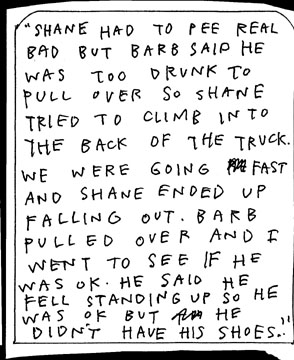 "SHANE HAD TO PEE REAL
BAD BUT BARB SAID HE
WAS TOO DRUNK TO
PULL OVER SO SHANE
TRIED TO CLIMB INTO
THE BACK OF THE TRUCK.
WE WERE GOING FAST
AND SHANE ENDED UP
FALLING OUT. BARB
PULLED OVER AND I
WENT TO SEE IF HE
WAS OK. HE SAID HE
FELL STANDING UP SO HE
WAS OK BUT HE
DIDN'T HAVE HIS SHOES."